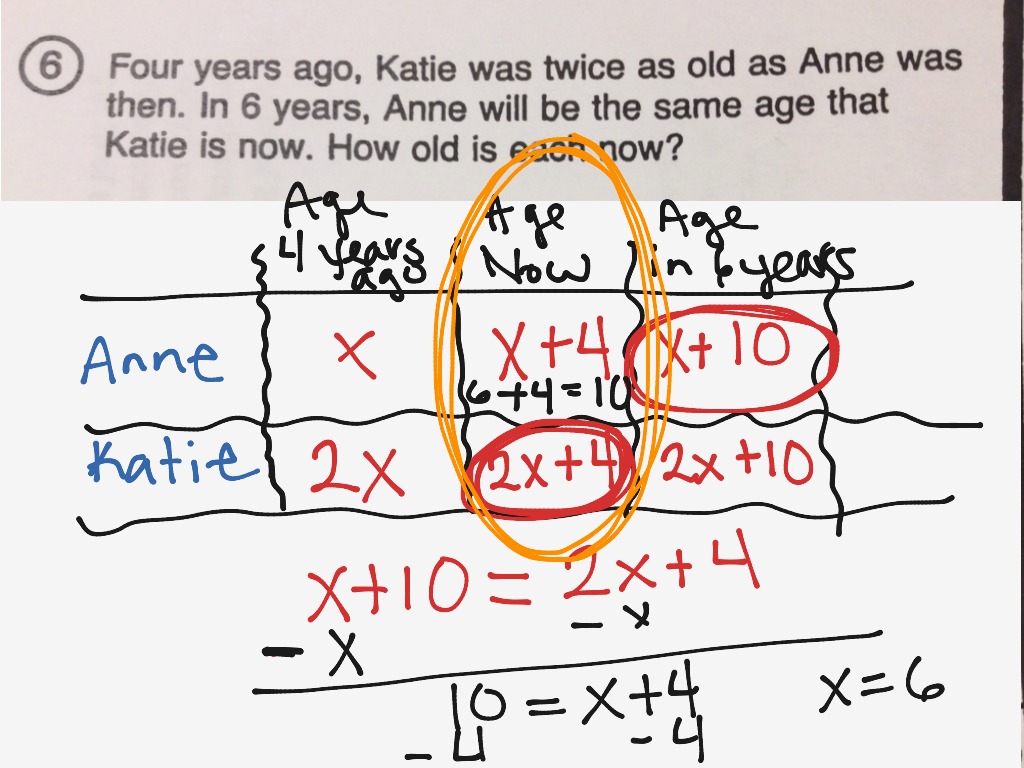 6 Four years ago, Katie was twice as old as Anne was
then. In 6 years, Anne will be the same age that
Katie is now. How old is each now?
Age Age Age
4 years Now in 6 years
ago
Anne x x+4 x+10
6+4=10
Katie 2x 2x+4 2x+10
x+10=2x+4
- x - x
10=x+4 x=6
-4 -4